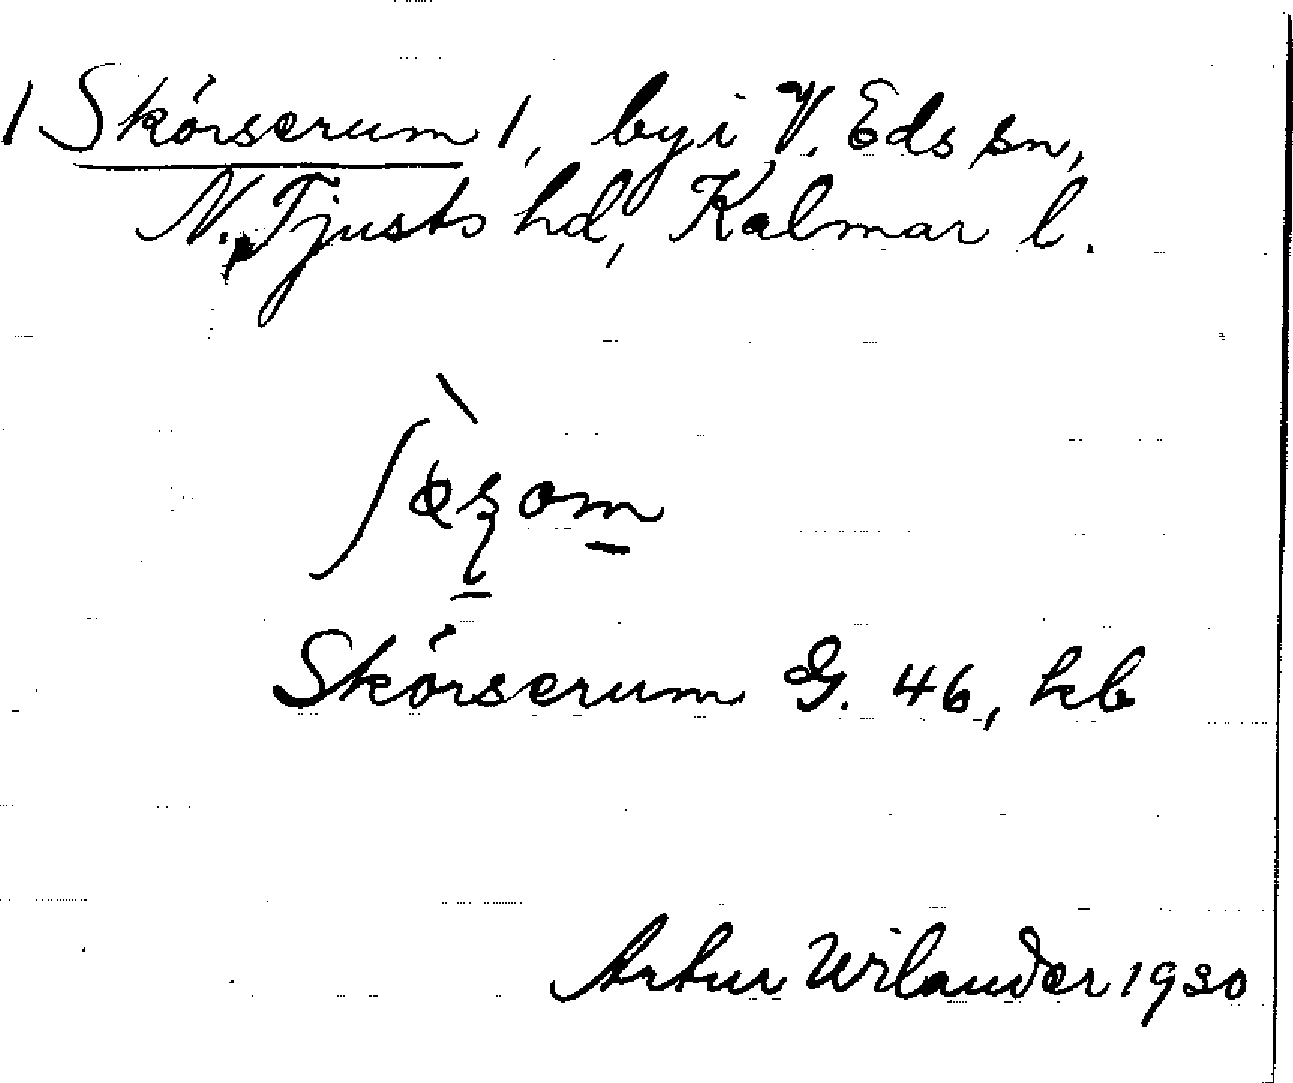 /Skörserum/, by i V. Eds sn,
N. Tjusts hd, Kalmar l.
Skörserum G. 46, kb
Artur Wilander 1930